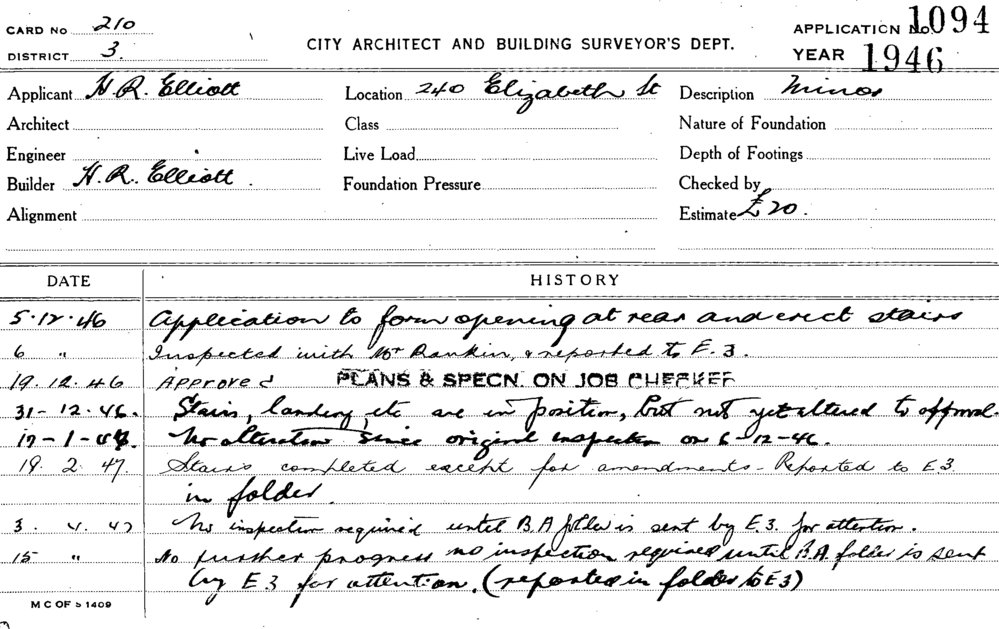 CARD No 210
DISTRICT 3
CITY ARCHITECT AND BUILDING SURVEYOR'S DEPT.
APPLICATION No. 1094
YEAR 1946
Applicant H. R. Elliott
Location 240 Elizabeth St
Description Minor
Architect
Class
Nature of Foundation
Engineer
Live Load
Depth of Footings
Builder H. R. Elliott
Foundation Pressure
Checked by
Alignment
Estimate £20.
DATE HISTORY
5.12.46 Application to form opening at rear and erect stairs
6 " Inspected with Mr Rankin, & reported to E.3.
19.12.46 Approved PLANS & SPECN. ON JOB CHECKED
31-12.46. Stairs, landing etc are in position, but not yet altered to approval.
17-1-47. No alteration since original inspection on 6-12-46.
19.2.47. Stairs completed except for amendments - Reported to E3
in folder.
3.4.47 No inspection required until B.A folder is sent by E.3. for attention.
15 " No further progress no inspection required until B.A. folder is sent
by E.3 for attention. (reported in folder to E3)
M C OF S 1409